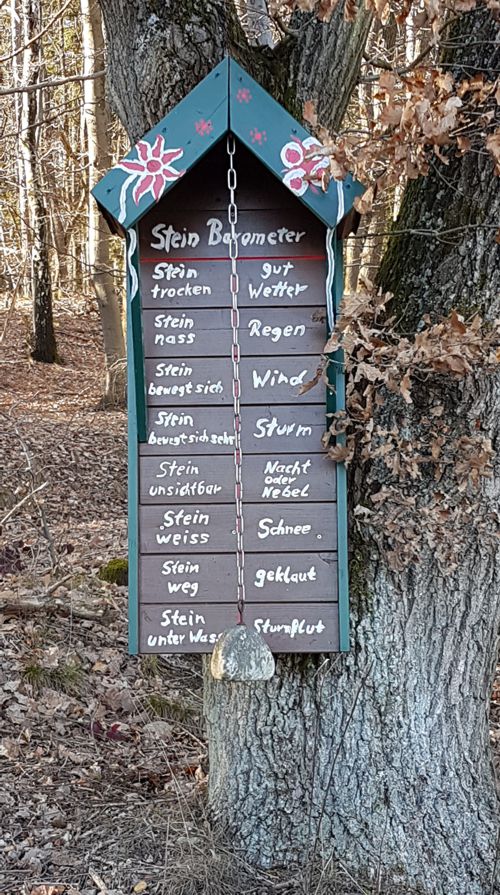 Stein Barometer
Stein gut
trocken Wetter
Stein Regen
nass
Stein Wind
bewegt sich
Stein Sturm
bewegt sich sehr
Stein Nacht
unsichtbar oder
Nebel
Stein Schnee
weiss
Stein geklaut
weg
Stein Sturmflut
unter Wass